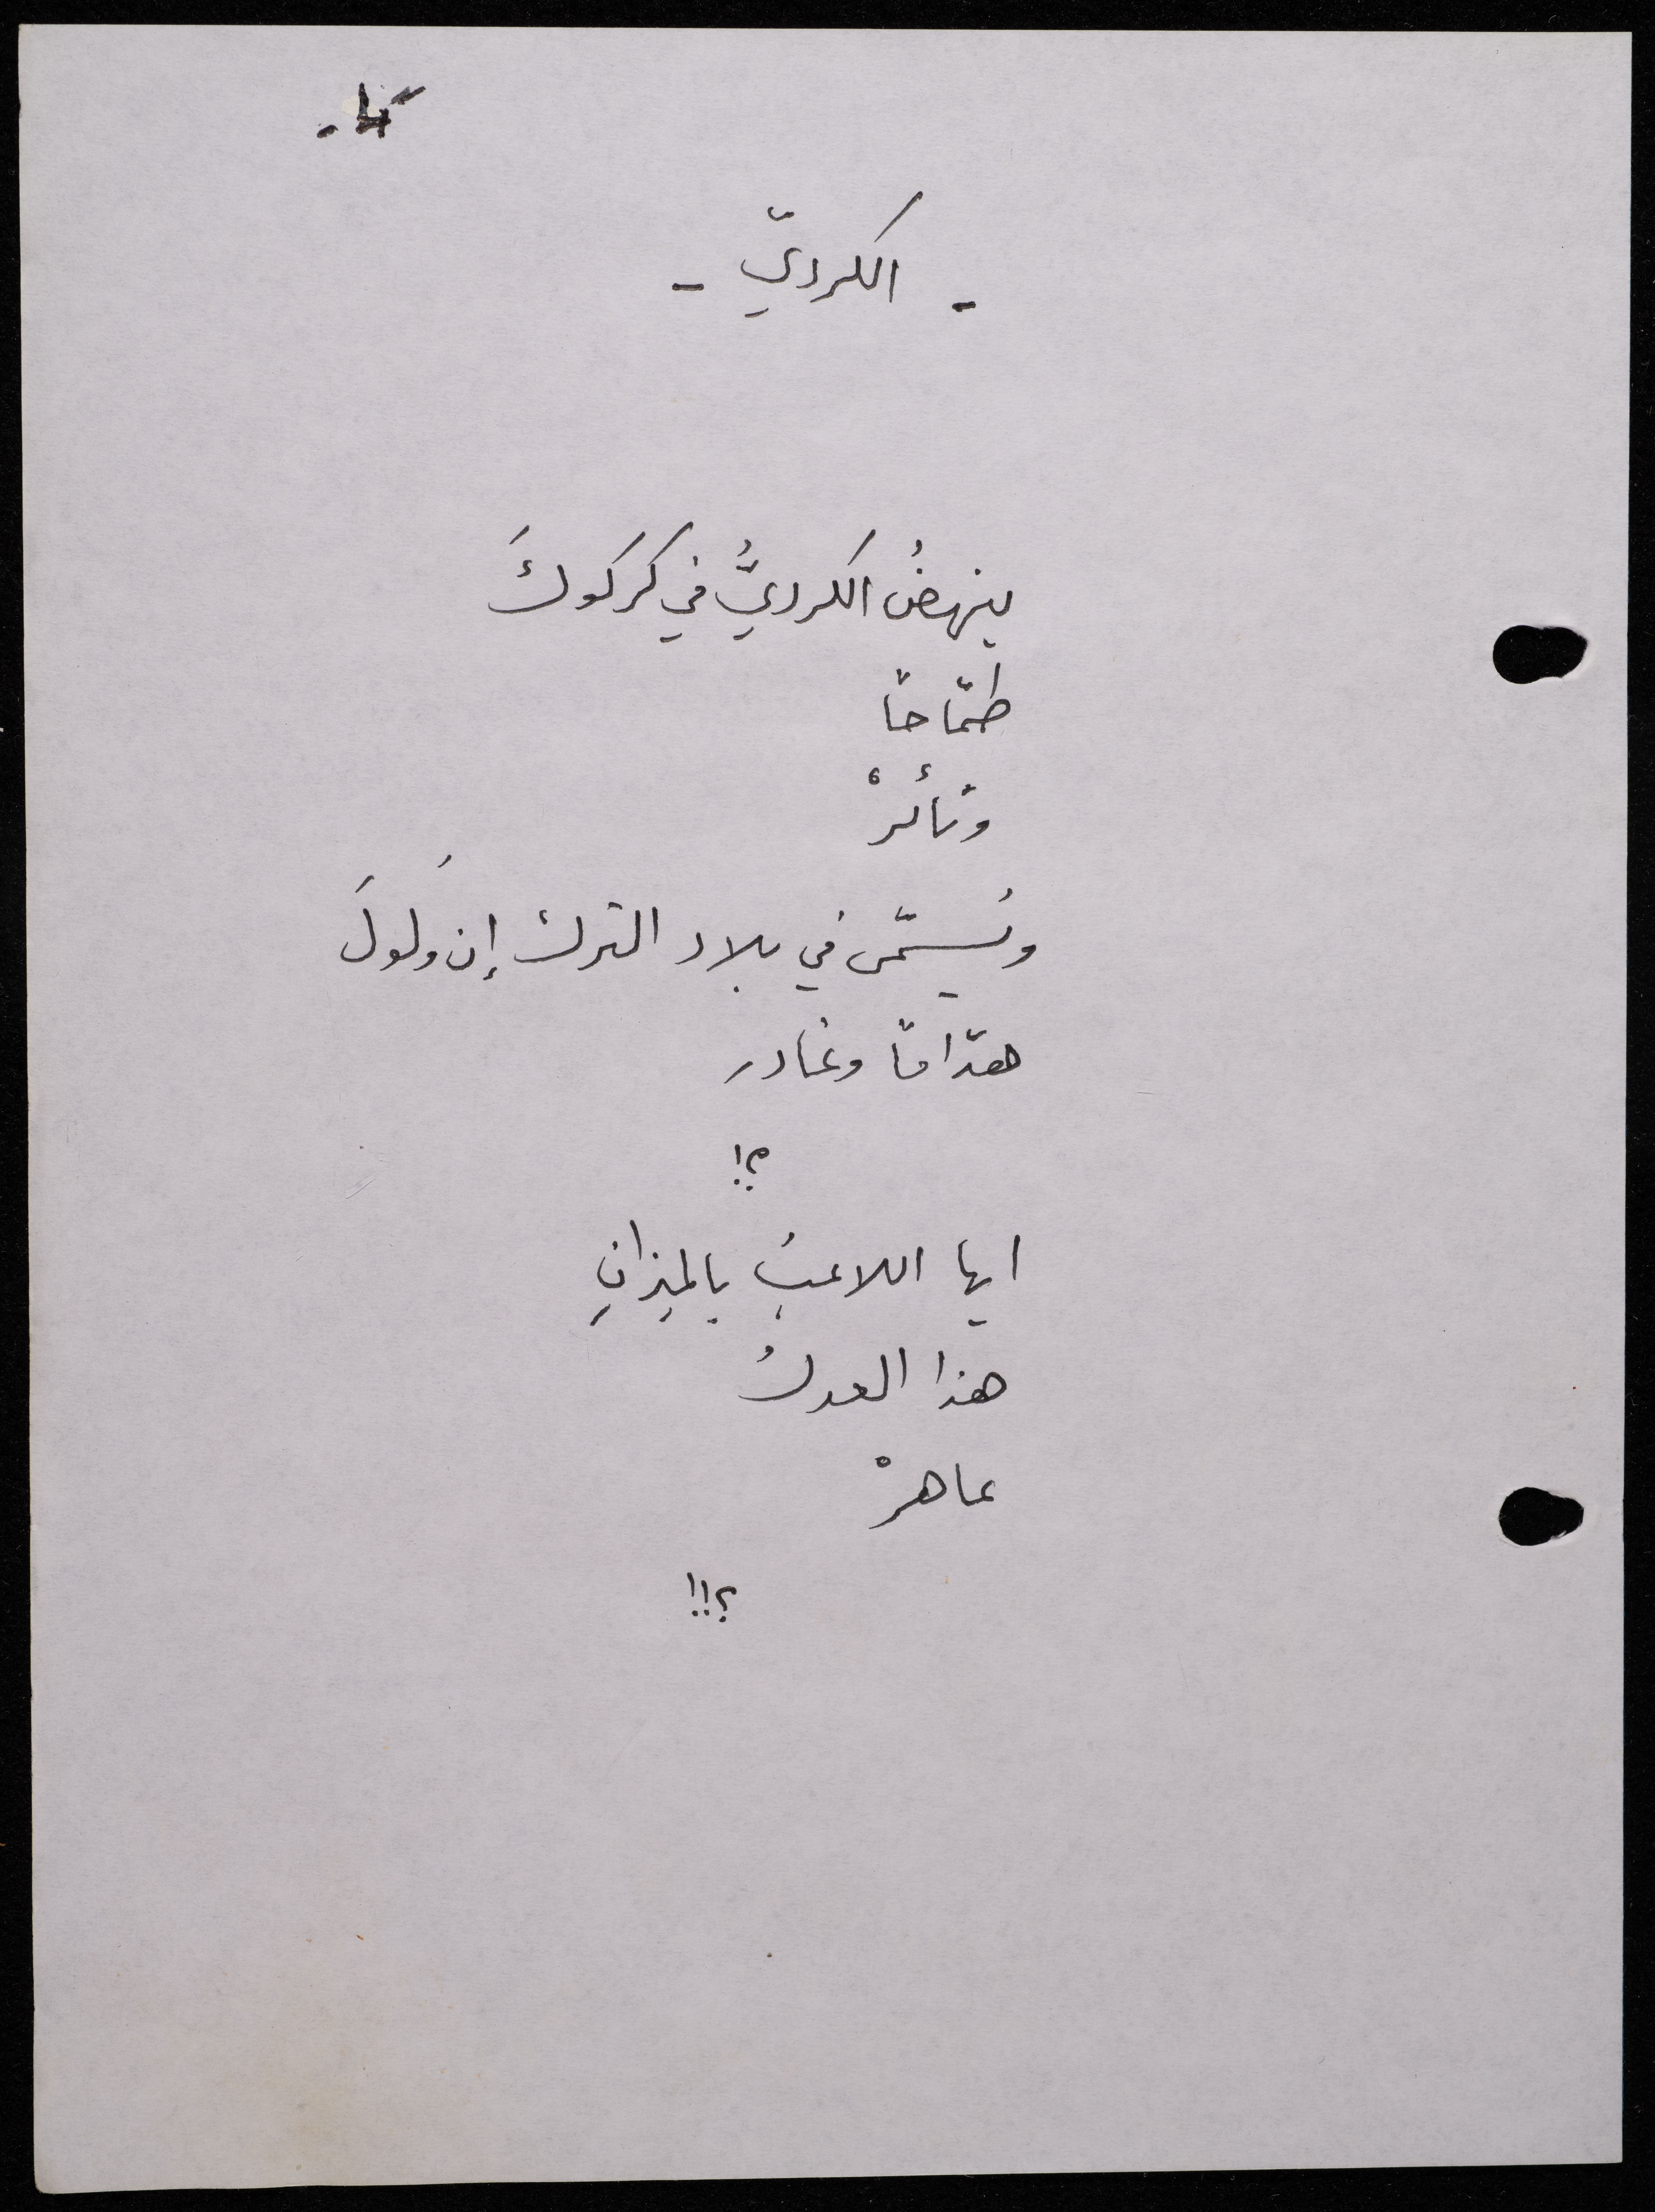 - الكرديّ -
ينهضُ الكرديُّ في كركوكَ
طمّاحًا
وثائرْ
ويُسمّى في بلاد الترك إن وَلولَ
هدّامًا وغادر
؟!
ايها اللاعبُ بالميزانِ
هذا العدلُ
عاهرْ
؟!!